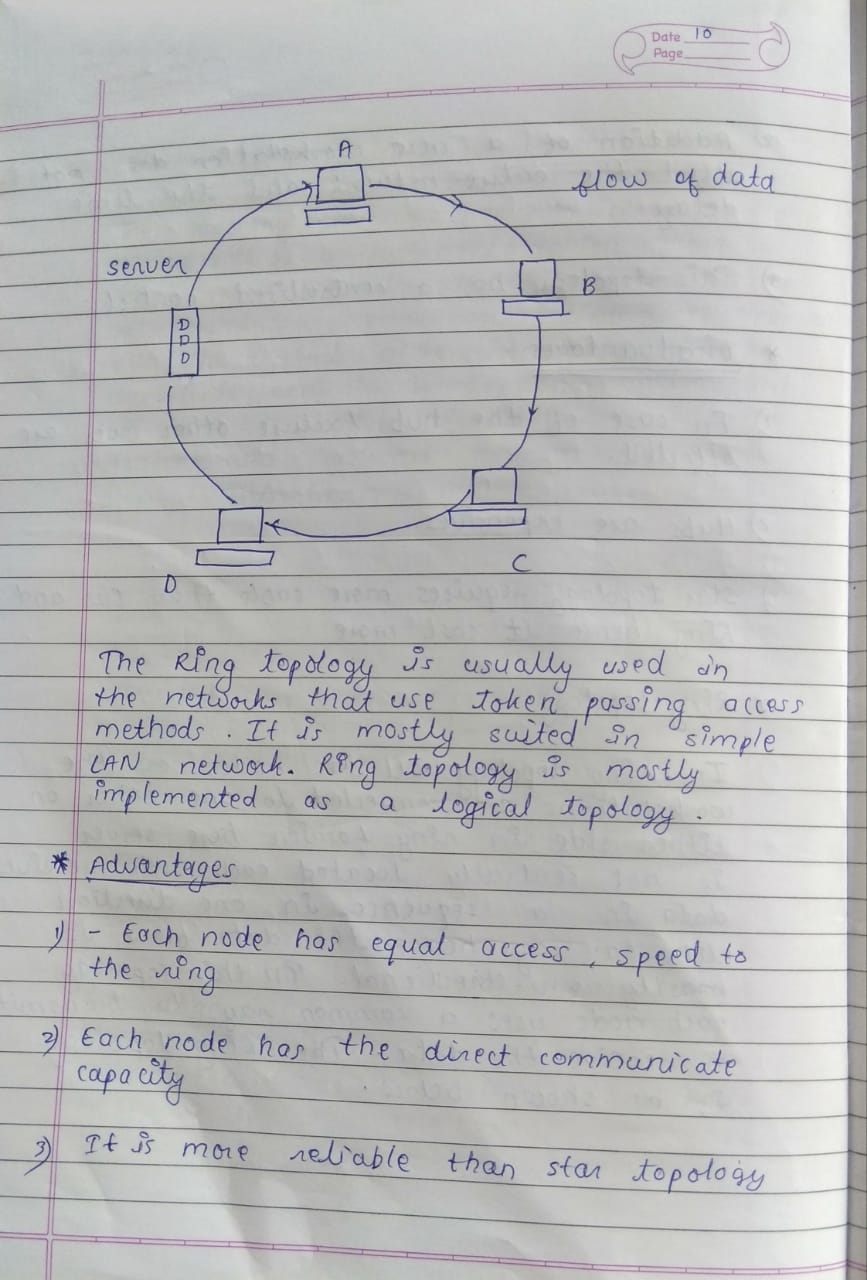 Date 10
Page
A
flow of data
server
B
D
D
D
C
D
The Ring topology is usually used in
the networks that use Token passing access
methods. It is mostly suited in simple
LAN network. Ring topology is mostly
implemented as a logical topology.
* Advantages
1) - Each node has equal access, speed to
the ring
2) Each node has the direct communicate
capacity
3) It is more reliable than star topology